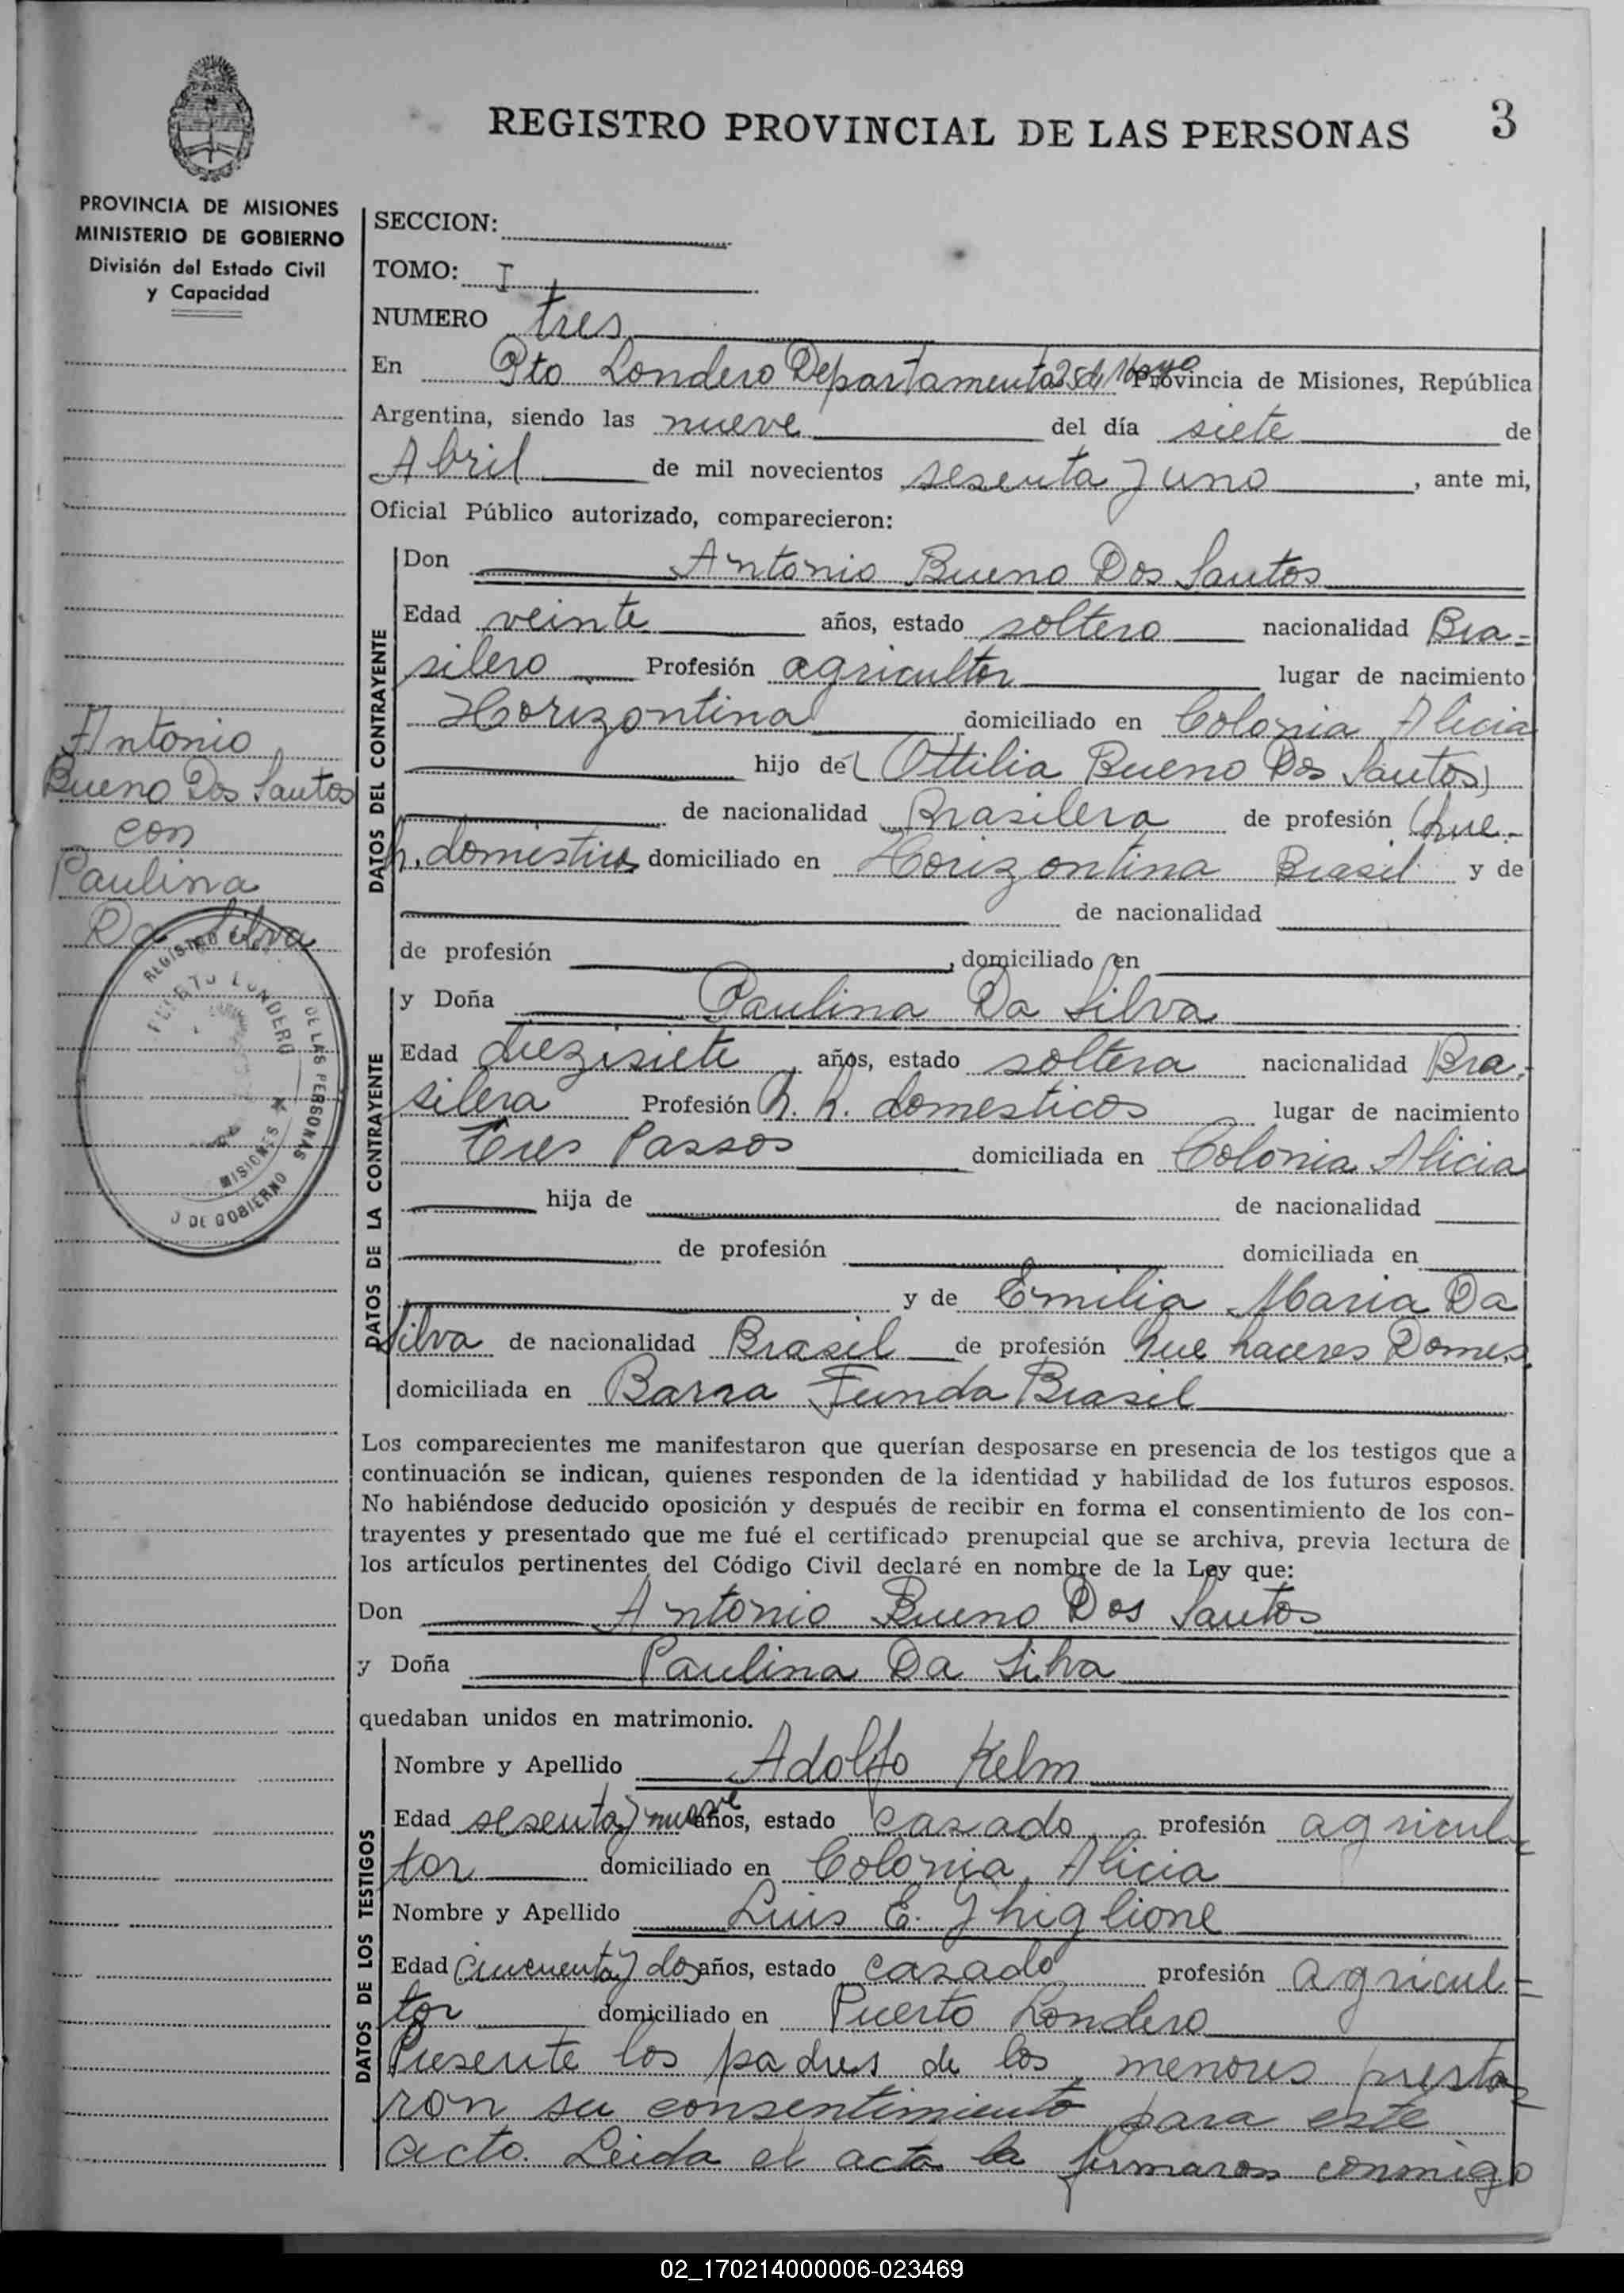 REGISTRO PROVINCIAL DE LAS PERSONAS
3
PROVINCIA DE MISIONES
MINISTERIO DE GOBIERNO
División del Estado Civil
y Capacidad
SECCION:
TOMO: I
NUMERO tres
En Pto Londero Departamento 25 de Mayo Provincia de Misiones, República
Argentina, siendo las nueve del día siete de
Abril de mil novecientos sesenta y uno, ante mi,
Oficial Público autorizado, comparecieron:
DATOS DEL CONTRAYENTE
Don Antonio Bueno Dos Santos
Edad veinte años, estado soltero nacionalidad Bra=
silero Profesión agricultor lugar de nacimiento
Horizontina domiciliado en Colonia Alicia
hijo de (Ottilia Bueno Dos Santos)
de nacionalidad Brasilera de profesión que-
h. domesticos domiciliado en Horizontina Brasil y de
de nacionalidad
de profesión , domiciliado en
Antonio
Bueno Dos Santos
con
Paulina
Da Silva
REGISTRO
DE LAS PERSONAS
PUERTO LONDERO
MISIONES
O DE GOBIERNO
DATOS DE LA CONTRAYENTE
y Doña Paulina Da Silva
Edad diezisiete años, estado soltera nacionalidad Bra-
silera Profesión q. h. domesticos lugar de nacimiento
Tres Passos domiciliada en Colonia Alicia
hija de de nacionalidad
de profesión domiciliada en
y de Emilia Maria Da
Silva de nacionalidad Brasil de profesión que haceres Domes.
domiciliada en Barra Funda Brasil
Los comparecientes me manifestaron que querían desposarse en presencia de los testigos que a
continuación se indican, quienes responden de la identidad y habilidad de los futuros esposos.
No habiéndose deducido oposición y después de recibir en forma el consentimiento de los con-
trayentes y presentado que me fué el certificado prenupcial que se archiva, previa lectura de
los artículos pertinentes del Código Civil declaré en nombre de la Ley que:
Don Antonio Bueno Dos Santos
y Doña Paulina Da Silva
quedaban unidos en matrimonio.
DATOS DE LOS TESTIGOS
Nombre y Apellido Adolfo Kelm
Edad sesenta y nueve años, estado casado profesión agricul-
tor domiciliado en Colonia Alicia
Nombre y Apellido Luis E. Ghiglione
Edad cincuenta y dos años, estado casado profesión agricul=
tor domiciliado en Puerto Londero
Presente los padres de los menores presta=
ron su consentimiento para este
acto. Leida el acta la firmaron conmigo
02_170214000006-023469